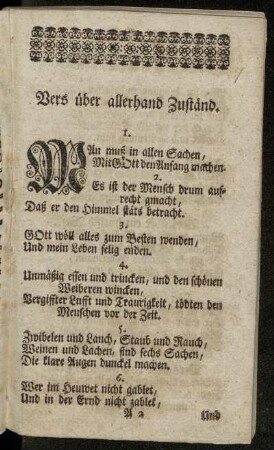 Vers über allerhand Zuständ.
1.
MAn muß in allen Sachen,
Mit GOtt den Anfang machen.
2.
Es ist der Mensch drum auf-
recht gmacht,
Daß er den Himmel stäts betracht.
3.
GOtt wöll alles zum Besten wenden,
Und mein Leben selig enden.
4.
Unmäßig essen und trincken, und den schönen
Weiberen wincken,
Vergiffter Lufft und Traurigkeit, tödten den
Menschen vor der Zeit.
5.
Zwibelen und Lauch, Staub und Rauch,
Weinen und Lachen, sind sechs Sachen,
Die klare Augen dunckel machen.
6.
Wer im Heuwet nicht gablet,
Und in der Ernd nicht zablet,
A 2 Und